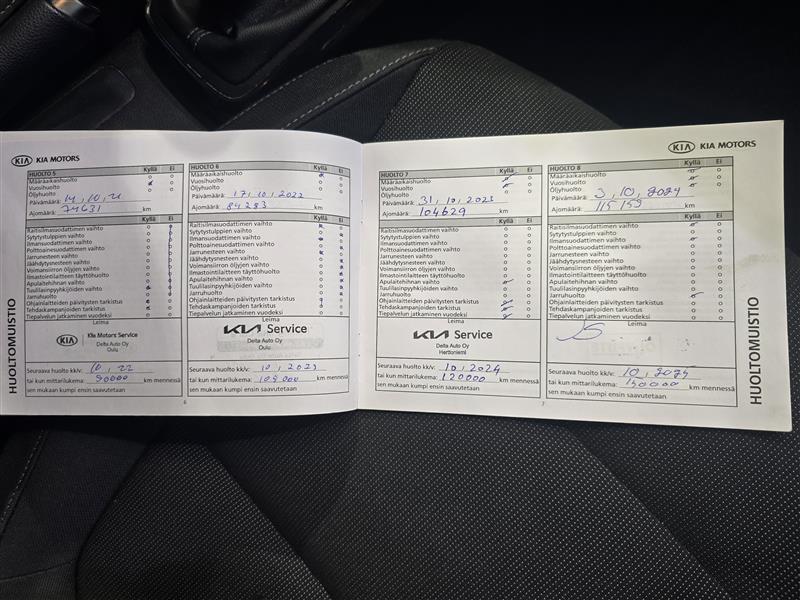 KIA KIA MOTORS
HUOLTO 5 Kyllä Ei
Määräaikaishuolto
Vuosihuolto
Öljyhuolto
Päivämäärä:
Ajomäärä: 74631 km
Kyllä Ei
Raitisilmasuodattimen vaihto
Sytytystulppien vaihto
Ilmansuodattimen vaihto
Polttoainesuodattimen vaihto
Jarrunesteen vaihto
Jäähdytysnesteen vaihto
Voimansiirron öljyjen vaihto
Ilmastointilaitteen täyttöhuolto
Apulaitehihnan vaihto
Tuulilasinpyyhkijöiden vaihto
Jarruhuolto
Ohjainlaitteiden päivitysten tarkistus
Tehdaskampanjoiden tarkistus
Tiepalvelun jatkaminen vuodeksi
Leima
KIA Kia Motors Service
Delta Auto Oy
Oulu
Seuraava huolto kk/v: 10, 22
tai kun mittarilukema: 90000 km mennessä
sen mukaan kumpi ensin saavutetaan
HUOLTO 6 Kyllä Ei
Määräaikaishuolto
Vuosihuolto
Öljyhuolto
Päivämäärä: 17, 10, 2022
Ajomäärä: 84283 km
Kyllä Ei
Raitisilmasuodattimen vaihto
Sytytystulppien vaihto
Ilmansuodattimen vaihto
Polttoainesuodattimen vaihto
Jarrunesteen vaihto
Jäähdytysnesteen vaihto
Voimansiirron öljyjen vaihto
Ilmastointilaitteen täyttöhuolto
Apulaitehihnan vaihto
Tuulilasinpyyhkijöiden vaihto
Jarruhuolto
Ohjainlaitteiden päivitysten tarkistus
Tehdaskampanjoiden tarkistus
Tiepalvelun jatkaminen vuodeksi
Leima
KIA Service
Delta Auto Oy
Oulu
Seuraava huolto kk/v: 10, 2023
tai kun mittarilukema: km mennessä
sen mukaan kumpi ensin saavutetaan
HUOLTOMUISTIO
6
KIA KIA MOTORS
HUOLTO 7 Kyllä Ei
Määräaikaishuolto
Vuosihuolto
Öljyhuolto
Päivämäärä: 31, 10, 2023
Ajomäärä: 104629 km
Kyllä Ei
Raitisilmasuodattimen vaihto
Sytytystulppien vaihto
Ilmansuodattimen vaihto
Polttoainesuodattimen vaihto
Jarrunesteen vaihto
Jäähdytysnesteen vaihto
Voimansiirron öljyjen vaihto
Ilmastointilaitteen täyttöhuolto
Apulaitehihnan vaihto
Tuulilasinpyyhkijöiden vaihto
Jarruhuolto
Ohjainlaitteiden päivitysten tarkistus
Tehdaskampanjoiden tarkistus
Tiepalvelun jatkaminen vuodeksi
Leima
KIA Service
Delta Auto Oy
Herttoniemi
Seuraava huolto kk/v: 10, 2024
tai kun mittarilukema: 120000 km mennessä
sen mukaan kumpi ensin saavutetaan
HUOLTO 8 Kyllä Ei
Määräaikaishuolto
Vuosihuolto
Öljyhuolto
Päivämäärä: 3, 10, 2024
Ajomäärä: 115 159 km
Kyllä Ei
Raitisilmasuodattimen vaihto
Sytytystulppien vaihto
Ilmansuodattimen vaihto
Polttoainesuodattimen vaihto
Jarrunesteen vaihto
Jäähdytysnesteen vaihto
Voimansiirron öljyjen vaihto
Ilmastointilaitteen täyttöhuolto
Apulaitehihnan vaihto
Tuulilasinpyyhkijöiden vaihto
Jarruhuolto
Ohjainlaitteiden päivitysten tarkistus
Tehdaskampanjoiden tarkistus
Tiepalvelun jatkaminen vuodeksi
Leima
Seuraava huolto kk/v: 10, 2025
tai kun mittarilukema: km mennessä
sen mukaan kumpi ensin saavutetaan
HUOLTOMUISTIO
7